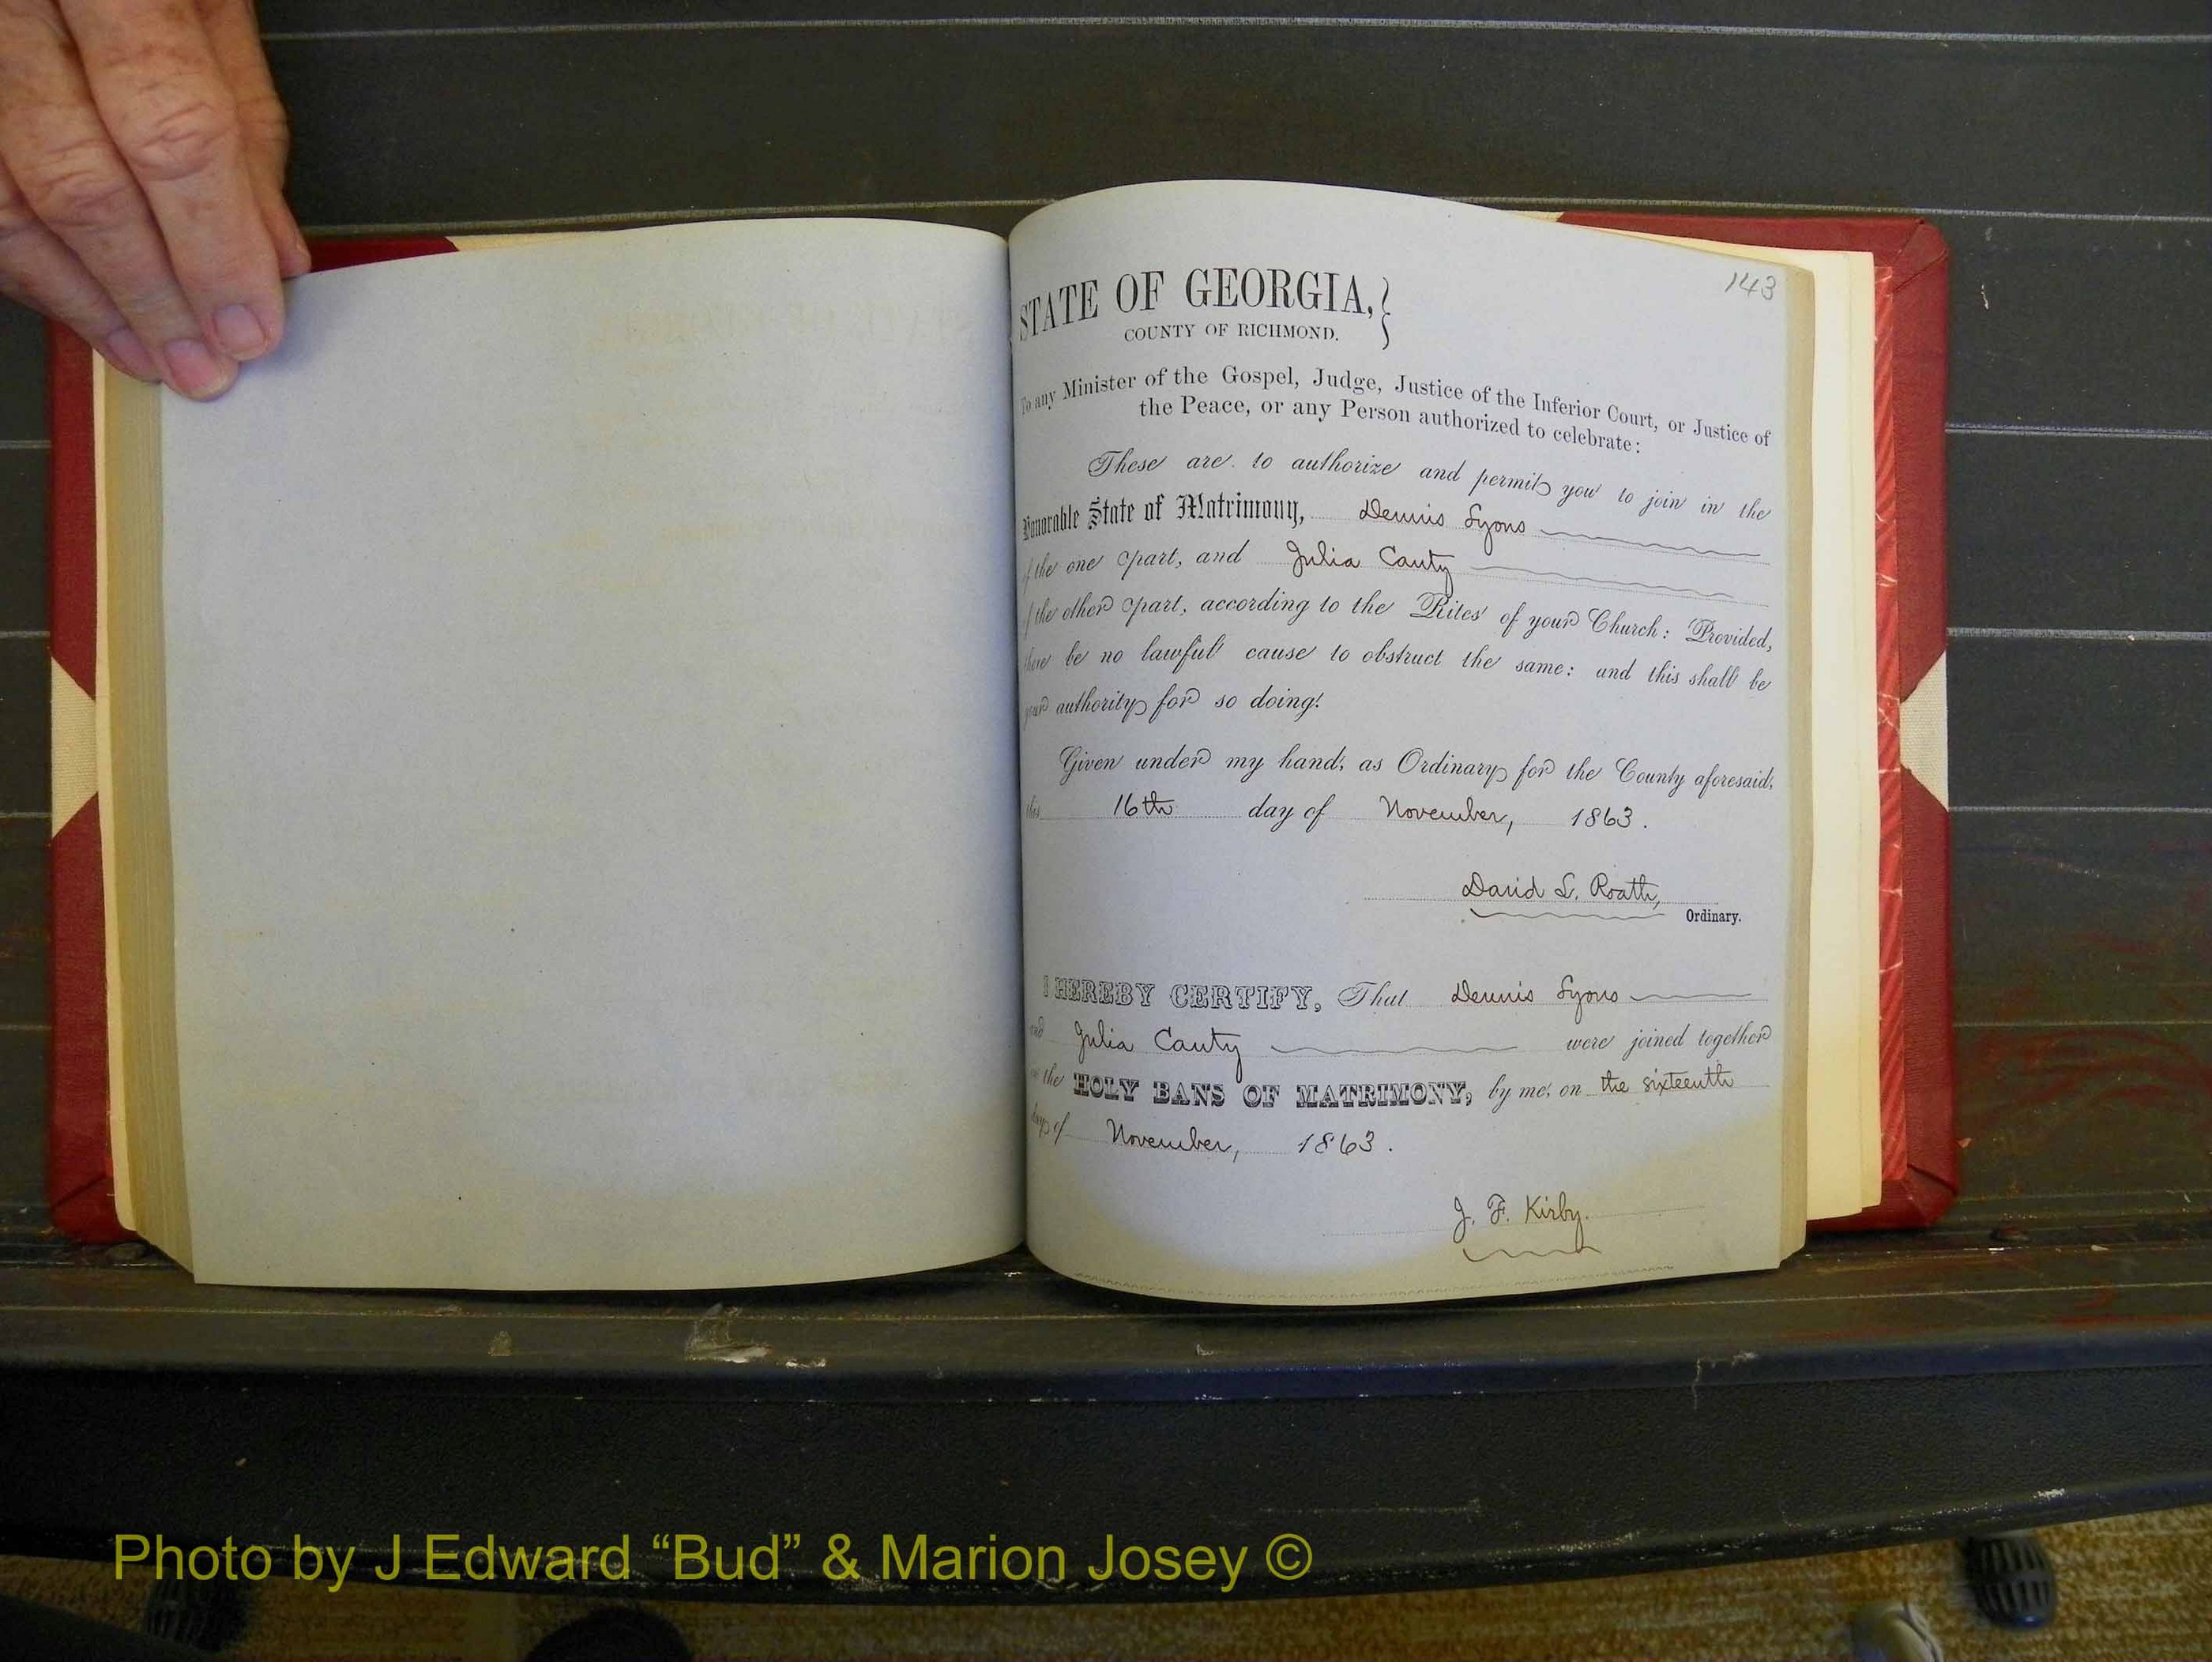 143
STATE OF GEORGIA,}
COUNTY OF RICHMOND.
To any Minister of the Gospel, Judge, Justice of the Inferior Court, or Justice of
the Peace, or any Person authorized to celebrate:
These are to authorize and permit you to join in the
Honorable State of Matrimony, Dennis Lyons
of the one part, and Julia Canty
of the other part, according to the Rites of your Church: Provided,
there be no lawful cause to obstruct the same: and this shall be
your authority for so doing.
Given under my hand, as Ordinary for the County aforesaid,
this 16th day of November, 1863.
David L. Roath,
Ordinary.
I HEREBY CERTIFY, That Dennis Lyons
and Julia Canty were joined together
in the HOLY BANS OF MATRIMONY, by me, on the sixteenth
day of November, 1863.
J. F. Kirby.
Photo by J Edward “Bud” & Marion Josey ©